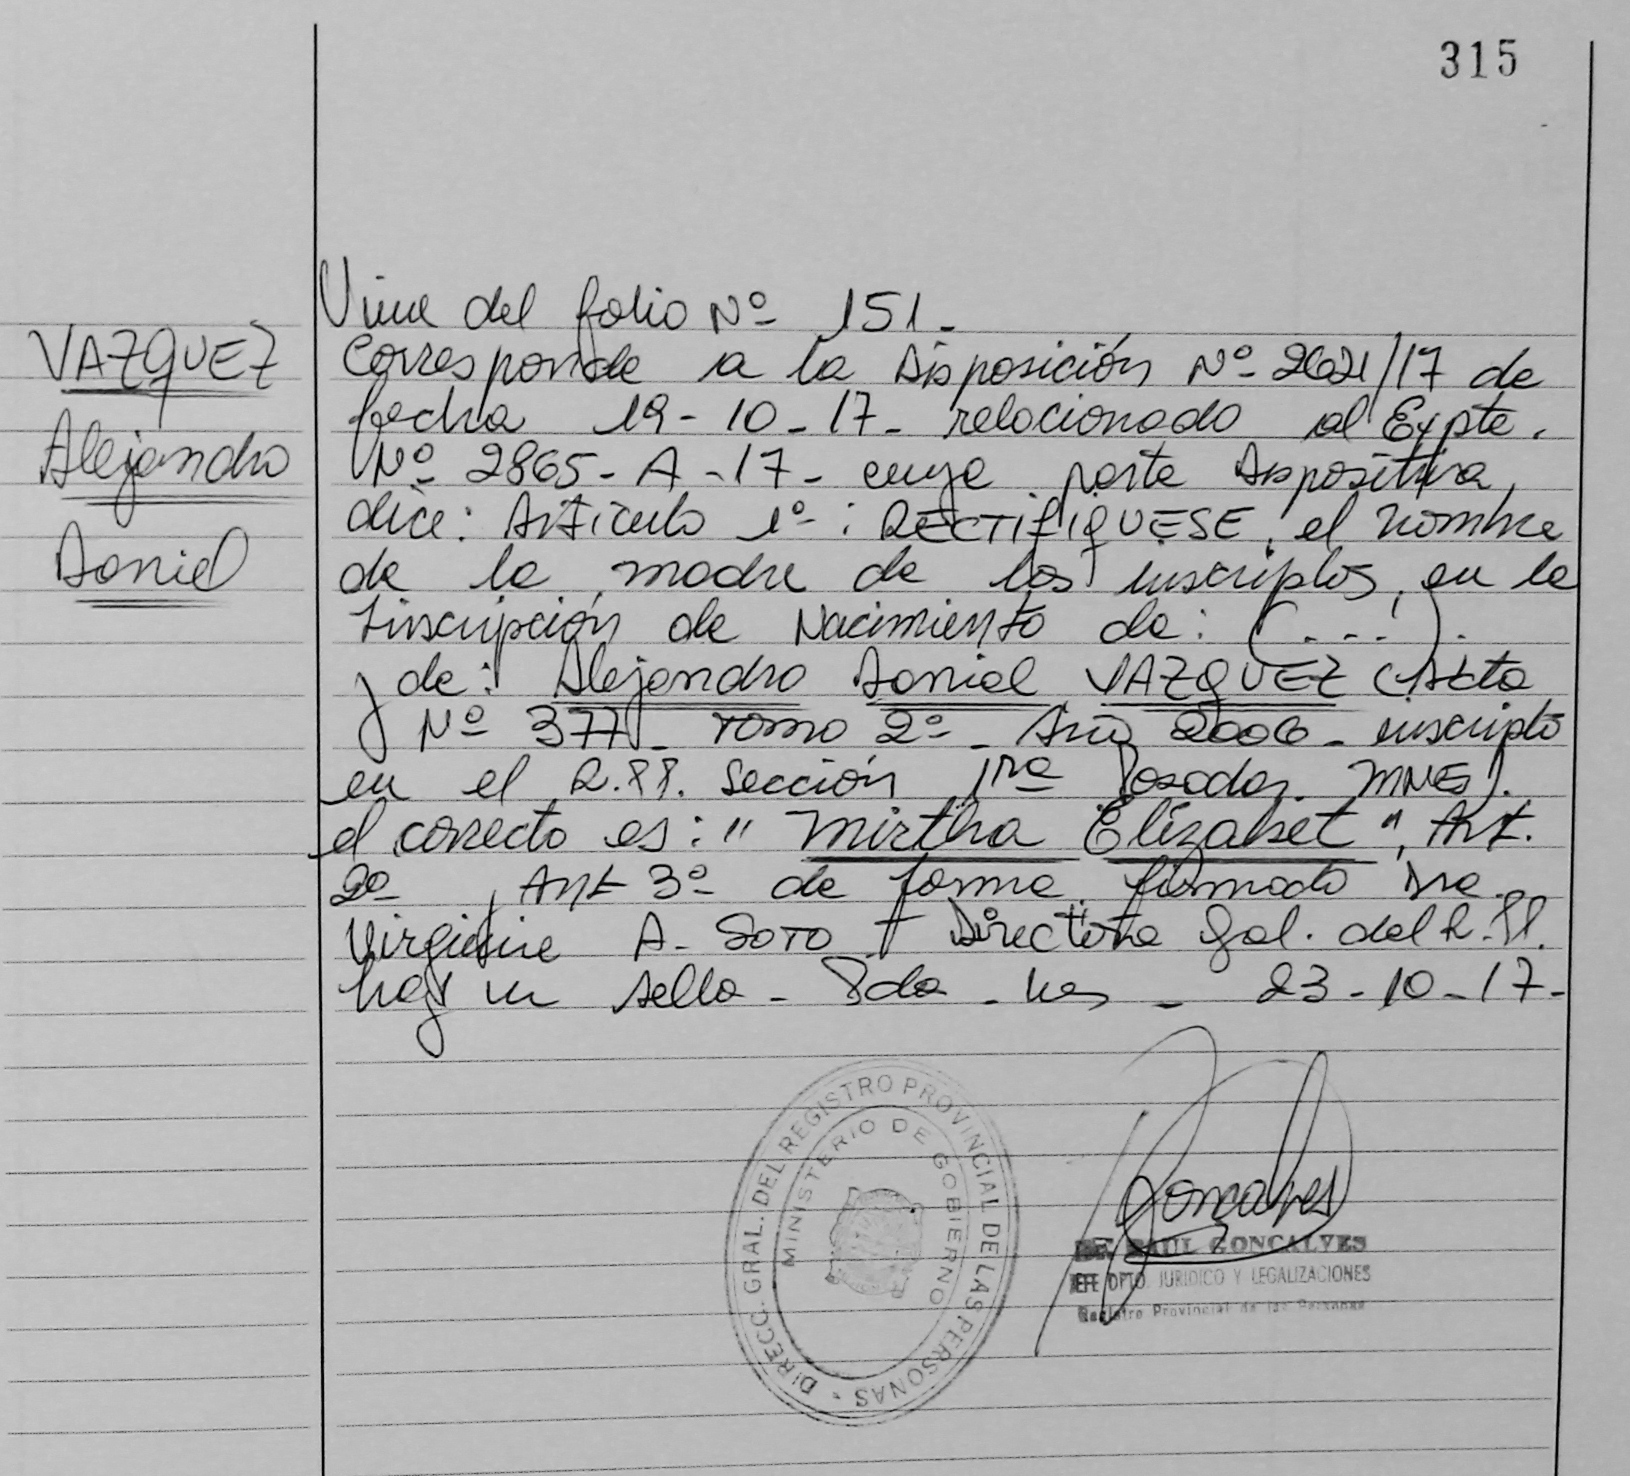 315
VAZQUEZ
Alejandro
Daniel
Viene del folio Nº 151.
Corresponde a la Disposición Nº 2621/17 de
fecha 19-10-17- relacionado al Expte.
Nº 2865-A-17- cuya parte Dispositiva,
dice: Artículo 1º: RECTIFIQUESE, el nombre
de la madre de los inscriptos, en la
Inscripción de Nacimiento de: (...).
y de: Alejandro Daniel VAZQUEZ (Acta
Nº 377- Tomo 2º- Año 2006- inscripto
en el R.PP. Sección 1ra Posadas. MNES).
el correcto es: "Mirtha Elizabet", Art.
2º, Art 3º de forma. firmado Dra.
Virginia A. SOTO - Directora Gal. del R.PP.
hay un sello - Pda - Mes - 23-10-17-
DIRECC. GRAL. DEL REGISTRO PROVINCIAL DE LAS PERSONAS -
MINISTERIO DE GOBIERNO
Goncalves
RAUL GONCALVES
DPTO. JURIDICO Y LEGALIZACIONES
Registro Provincial de las Personas